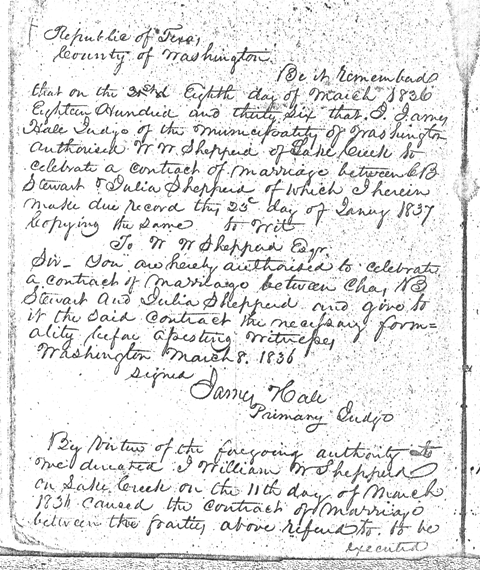 Republic of Texas
County of Washington.
Be it Remembered
that on the Eighth day of March 1836
Eighteen Hundred and thirty Six that I James
Hall Judge of the Municipality of Washington
authorised W. W. Shepperd of Lake Creek to
celebrate a contract of marriage between C B
Stewart & Julia Shepperd of which I herein
make due record this 23d day of Jany 1837
Copying the same to Wit
To W W Shepperd Esqr.
Sir - You are hereby authorised to celebrate
a contract of marriage between Chas B
Stewart And Julia Shepperd and give to
it the said contract the necessary form=
ality before witnesses
Washington March 8. 1836
signed
James Hall
Primary Judge
By Virtue of the foregoing authority to
me directed I William W Shepperd
on Lake Creek on the 11th day of March
1836 caused the contract of Marriage
between the parties above referd to to be
executed